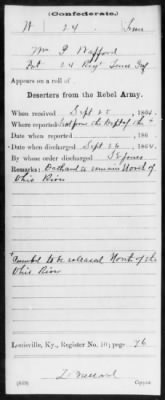 (Confederate.)
W 24 Tenn
Wm P Wafford
Pvt 24 Reg't Tenn Inf
Appears on a roll of
Deserters from the Rebel Army.
When received Sept 25, 1864.
Where reported from the Dept of the
Date when reported , 186
Date when discharged Sept 26, 1864.
By whose order discharged S E Jones
Remarks: Oath and to remain North of
Ohio River
to be released North of the
Ohio River
Louisville, Ky., Register No. 10; page 76